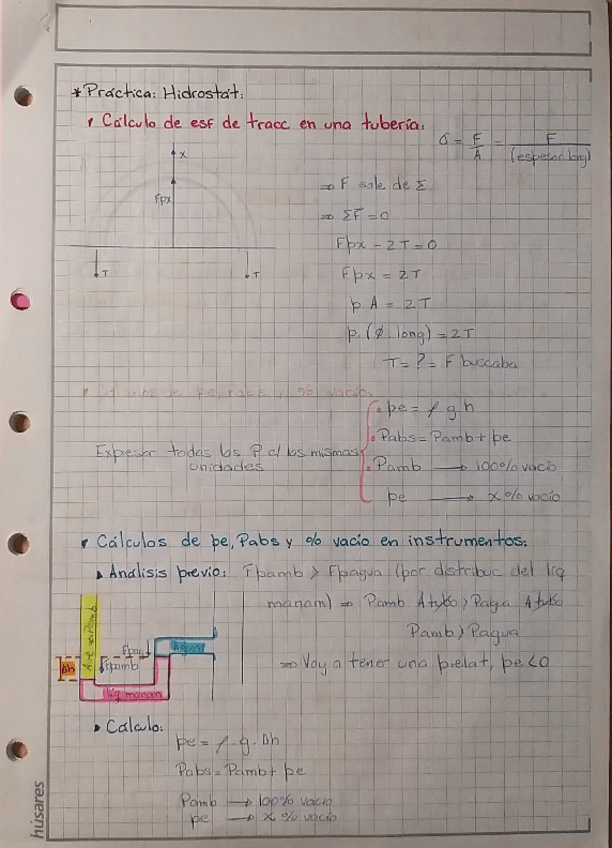 * Práctica: Hidrostát:
Cálculo de esf de tracc en una tubería:
σ = F/A = F/(espesor.long)
x
Fpx
T
T
⇒ F sale de Σ
⇒ ΣF = 0
Fpx - 2T = 0
Fpx = 2T
p A = 2T
p. (Ø. long) = 2T
T = ? = F buscaba
pe, Pabs, % vacío
Expresar todas las P c/ las mismas
unidades
pe = ρ g h
Pabs = Pamb + pe
Pamb → 100% vacío
pe → x % vacío
Cálculos de pe, Pabs y % vacío en instrumentos:
Análisis previo: Fpamb > Fpagua (por distribuc del líq
manom) ⇒ Pamb A tubo > Pagua A tubo
Pamb > Pagua
⇒ Voy a tener una prelat, pe < 0
Aire → Pamb
Fpag
Agua
Fpamb
Δh
líq manom
Cálculo:
pe = ρ . g . Δh
Pabs = Pamb + pe
Pamb → 100% vacío
pe → x % vacío
húsares